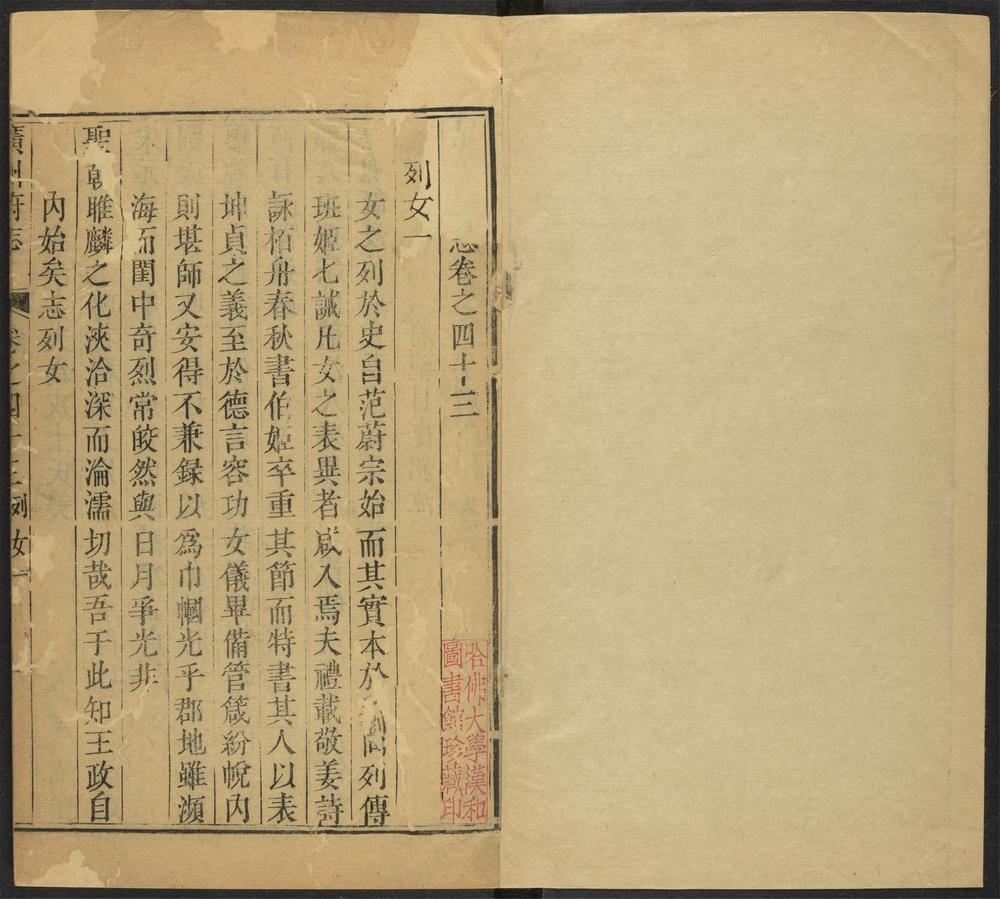 志卷之四十三
列女一
女之列於史自范蔚宗始而其實本於劉向列傳
班姬七誡凡女之表異者咸入焉夫禮載敬姜詩
詠栢舟春秋書伯姬卒重其節而特書其人以表
坤貞之義至於德言容功女儀畢備管箴紛帨内
則堪師又安得不兼録以爲巾幗光乎郡地雖瀕
海而閨中奇烈常皎然與日月爭光非
聖朝雎麟之化浹洽深而淪濡切哉吾于此知王政自
内始矣志列女
廣州府志 卷之四十三列女一
哈佛大學漢和
圖書館珍藏印